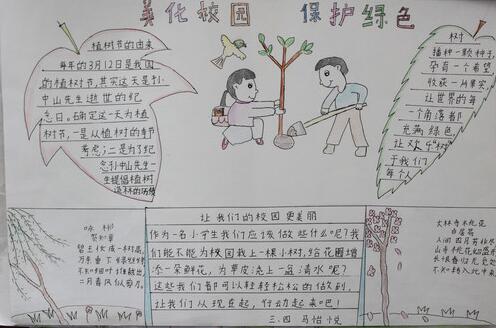 美化校园 保护绿色
植树节的由来
每年的3月12日是我国
的植树节,其实这天是孙
中山先生逝世的纪
念日。确定这一天为植
树节,一是从植树的季节
考虑;二是为了纪
念孙中山先生一
生提倡植树
造林的功绩
树
播种一颗种子,
孕育一个希望
收获一片果实,
让世界的每
一个角落都
充满绿色,
让欢乐"树"
于我们
每个人
咏柳
贺知章
碧玉妆成一树高,
万条垂下绿丝绦
不知细叶谁裁出,
二月春风似剪刀。
让我们的校园更美丽
作为一名小学生我们应该做些什么呢?我
们能不能为校园栽上一棵小树,给花圃增
添一朵鲜花,为草皮浇上一盆清水呢?
这些我们都可以轻轻松松的做到,
让我们从现在起,行动起来吧!
三、四 马怡悦
大林寺桃花
白居易
人间四月芳菲尽
山寺桃花始盛开
长恨春归无觅处
不知转入此中来